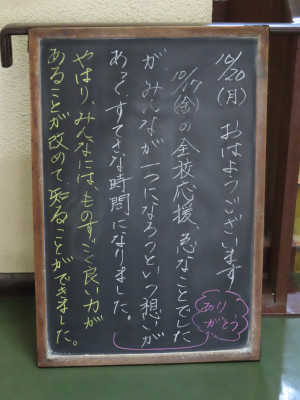 10/20(月) おはようございます
10/17(金)の全校応援、急なことでした
が、みんなが一つになろうという想いが
あって、すてきな時間になりました。
ありがとう
やはり、みんなには、ものすごく良い力が
あることが改めて知ることができました。